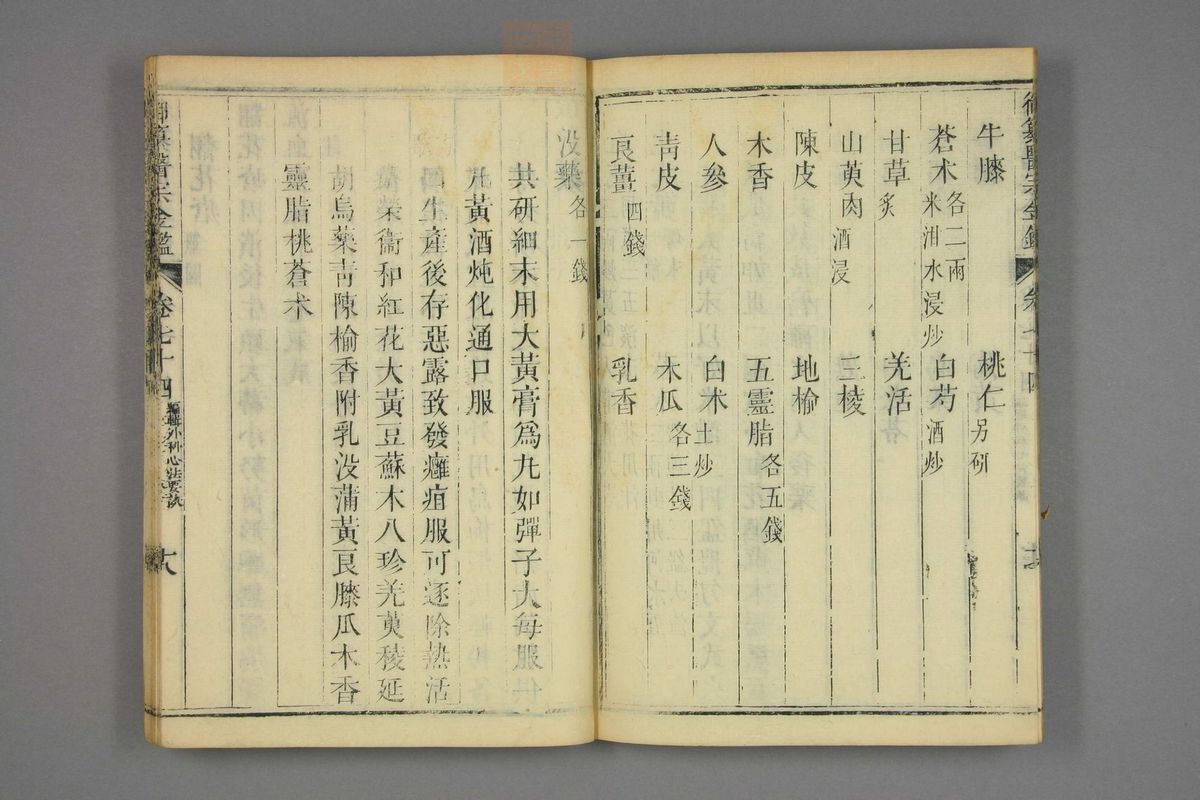 御纂醫宗金鑑 卷七十四
牛膝 桃仁另研
蒼朮各二兩米泔水浸炒 白芍酒炒
甘草炙 羌活
山萸肉酒浸 三稜
陳皮 地榆
木香 五靈脂各五錢
人參 白朮土炒
青皮 木瓜各三錢
良薑四錢 乳香
没藥各一錢
共研細末用大黃膏爲丸如彈子大每服
一丸黃酒炖化通口服
回生產後存惡露致發癰疽服可逐除熱活
瘀榮衞和紅花大黃豆蘇木八珍羌萸稜延
胡烏藥青陳榆香附乳没蒲黃良膝瓜木香
靈脂桃蒼朮
御纂醫宗金鑑 卷七十四 編輯外科心法要訣 十八